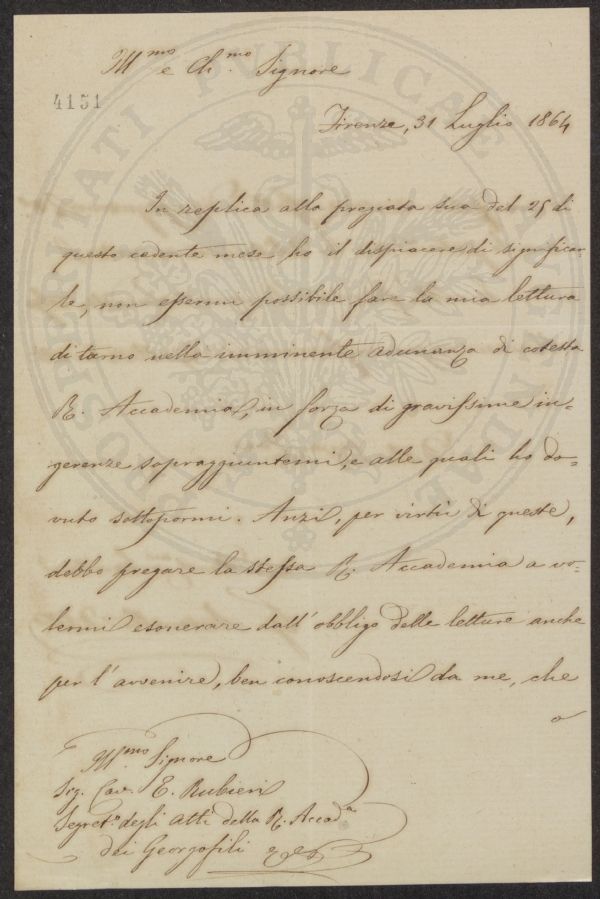 Ill.mo e Ch.mo Signore
4151
Firenze, 31 Luglio 1864
In replica alla pregiata sua del 25 di
questo cadente mese ho il dispiacere di significar-
le, non essermi possibile fare la mia lettura
di turno nella imminente adunanza di cotesta
R. Accademia, in forza di gravissime in-
gerenze sopraggiuntemi, e alle quali ho do-
vuto sottopormi. Anzi, per virtù di queste,
debbo pregare la stessa R. Accademia a vo-
lermi esonerare dall'obbligo delle letture anche
per l'avvenire, ben conoscendosi da me, che
Ill.mo Signore
Sig. Cav. E. Rubieri
Segret.o degli Atti della R. Accad.a
dei Georgofili
PROSPERITATI PUBLICAE AUGENDAE